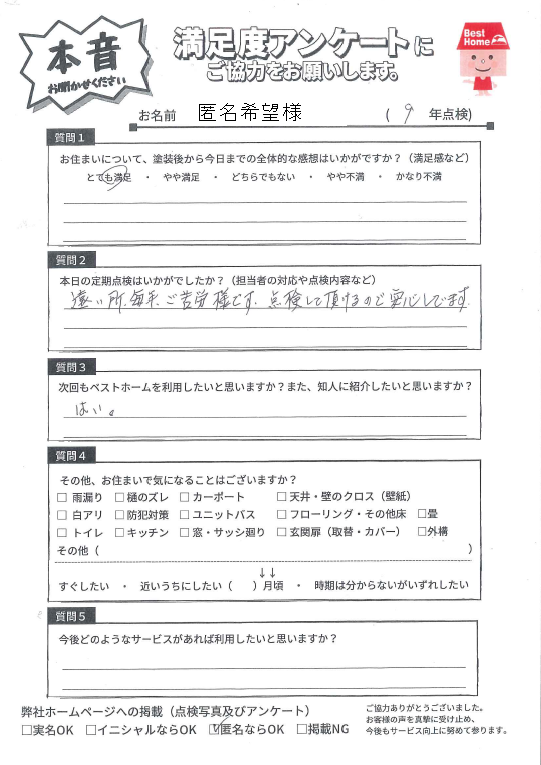 本音
お聞かせください
満足度アンケートに
ご協力をお願いします。
Best Home
お名前 匿名希望様 ( 9 年点検)
質問1
お住まいについて、塗装後から今日までの全体的な感想はいかがですか?(満足感など)
とても満足 ・ やや満足 ・ どちらでもない ・ やや不満 ・ かなり不満
質問2
本日の定期点検はいかがでしたか?(担当者の対応や点検内容など)
遠い所、毎年、ご苦労様です。点検して頂けるので安心してます。
質問3
次回もベストホームを利用したいと思いますか?また、知人に紹介したいと思いますか?
はい。
質問4
その他、お住まいで気になることはございますか?
□ 雨漏り □ 樋のズレ □ カーポート □ 天井・壁のクロス(壁紙)
□ 白アリ □ 防犯対策 □ ユニットバス □ フローリング・その他床 □畳
□ トイレ □ キッチン □ 窓・サッシ廻り □ 玄関扉(取替・カバー) □外構
その他( )
↓↓
すぐしたい ・ 近いうちにしたい( )月頃 ・ 時期は分からないがいずれしたい
質問5
今後どのようなサービスがあれば利用したいと思いますか?
弊社ホームページへの掲載(点検写真及びアンケート)
□実名OK □イニシャルならOK ☑匿名ならOK □掲載NG
ご協力ありがとうございました。
お客様の声を真摯に受け止め、
今後もサービス向上に努めて参ります。